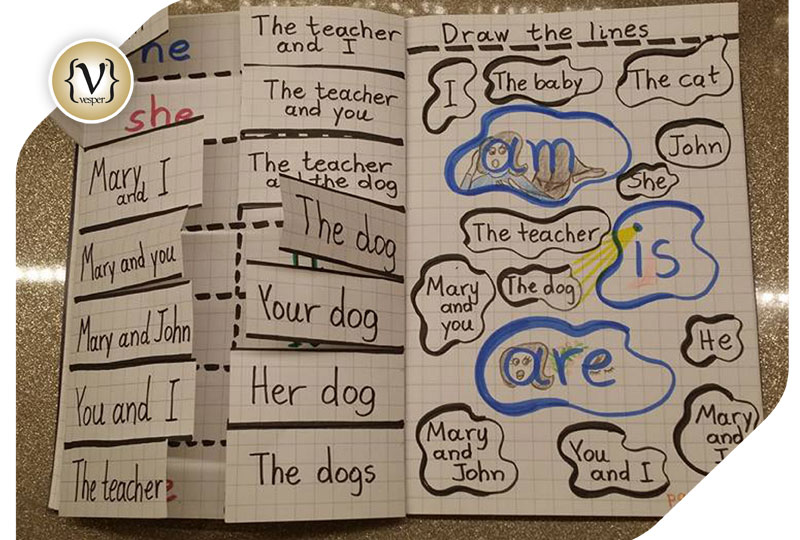 {V}
vesper
he
she
Mary
and I
Mary and you
Mary and John
You and I
The teacher
The teacher
and I
The teacher
and you
The teacher
and the dog
The dog
Your dog
Her dog
The dogs
Draw the lines
I
The baby
The cat
am
John
She
The teacher
is
Mary
and
you
The dog
He
are
Mary
and
John
You
and I
Mary
and
I